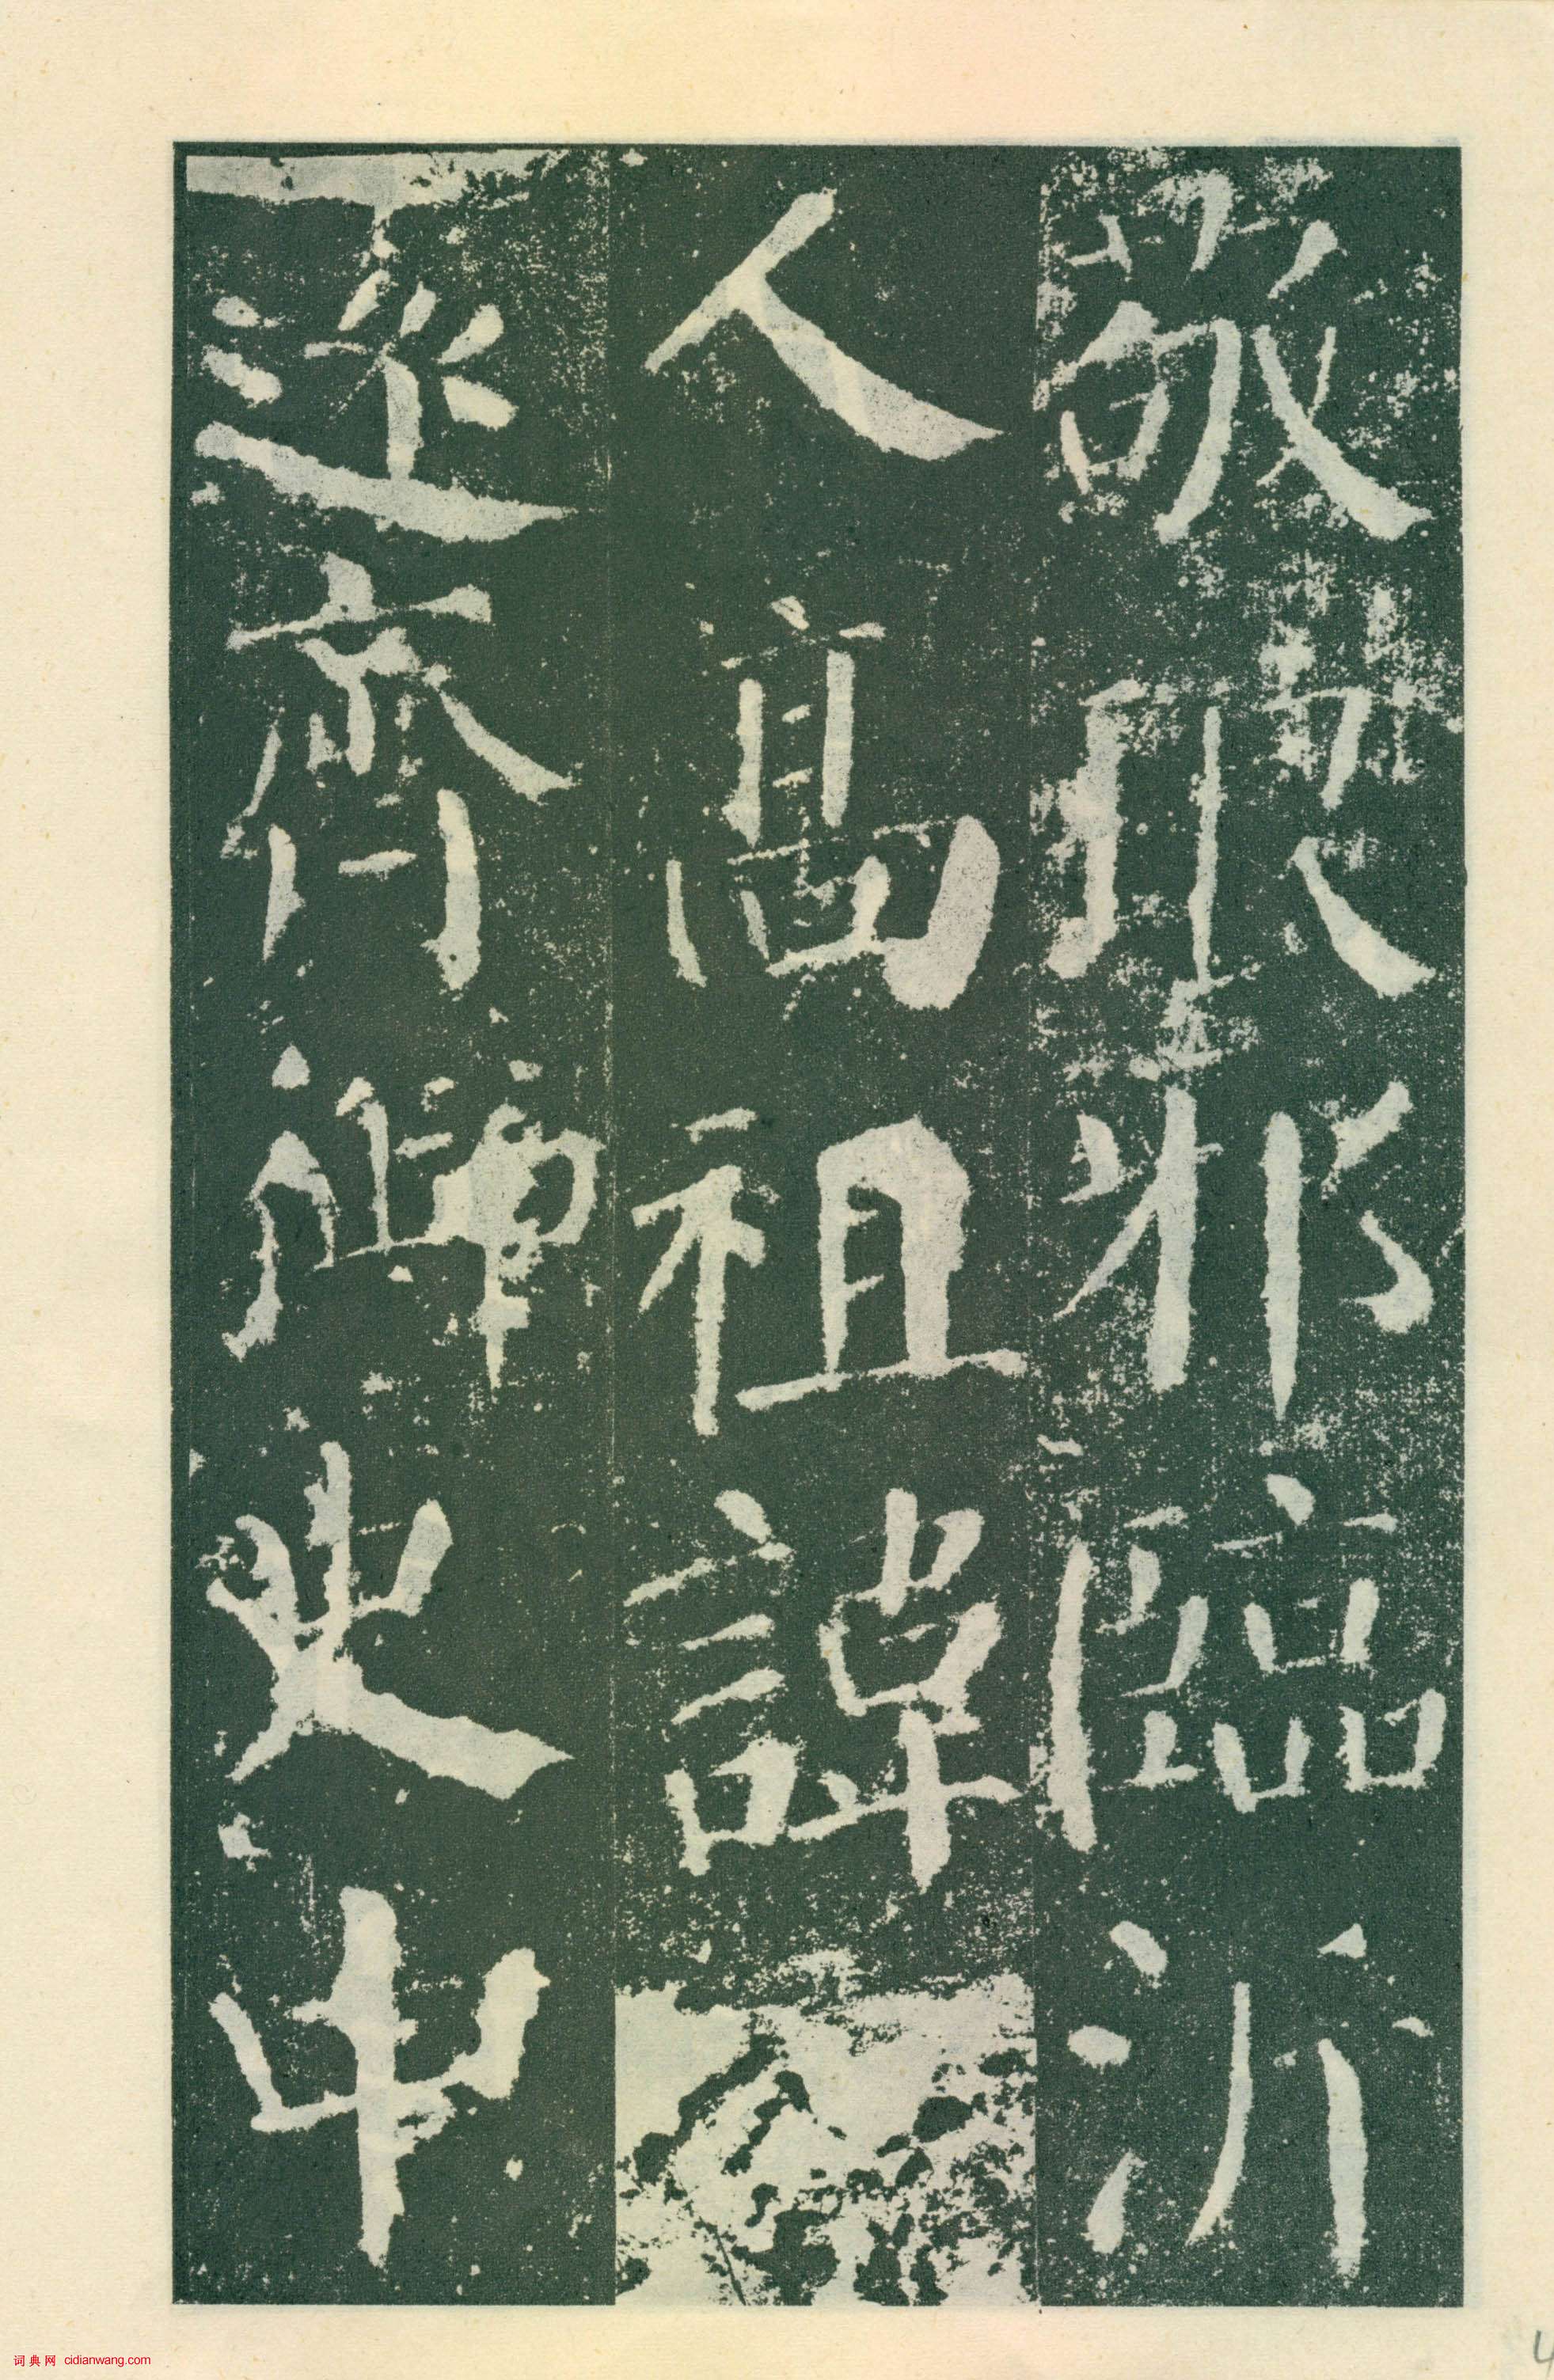 敬琅邪臨沂
人高祖諱
遠齊御史中
词典网 cidianwang.com